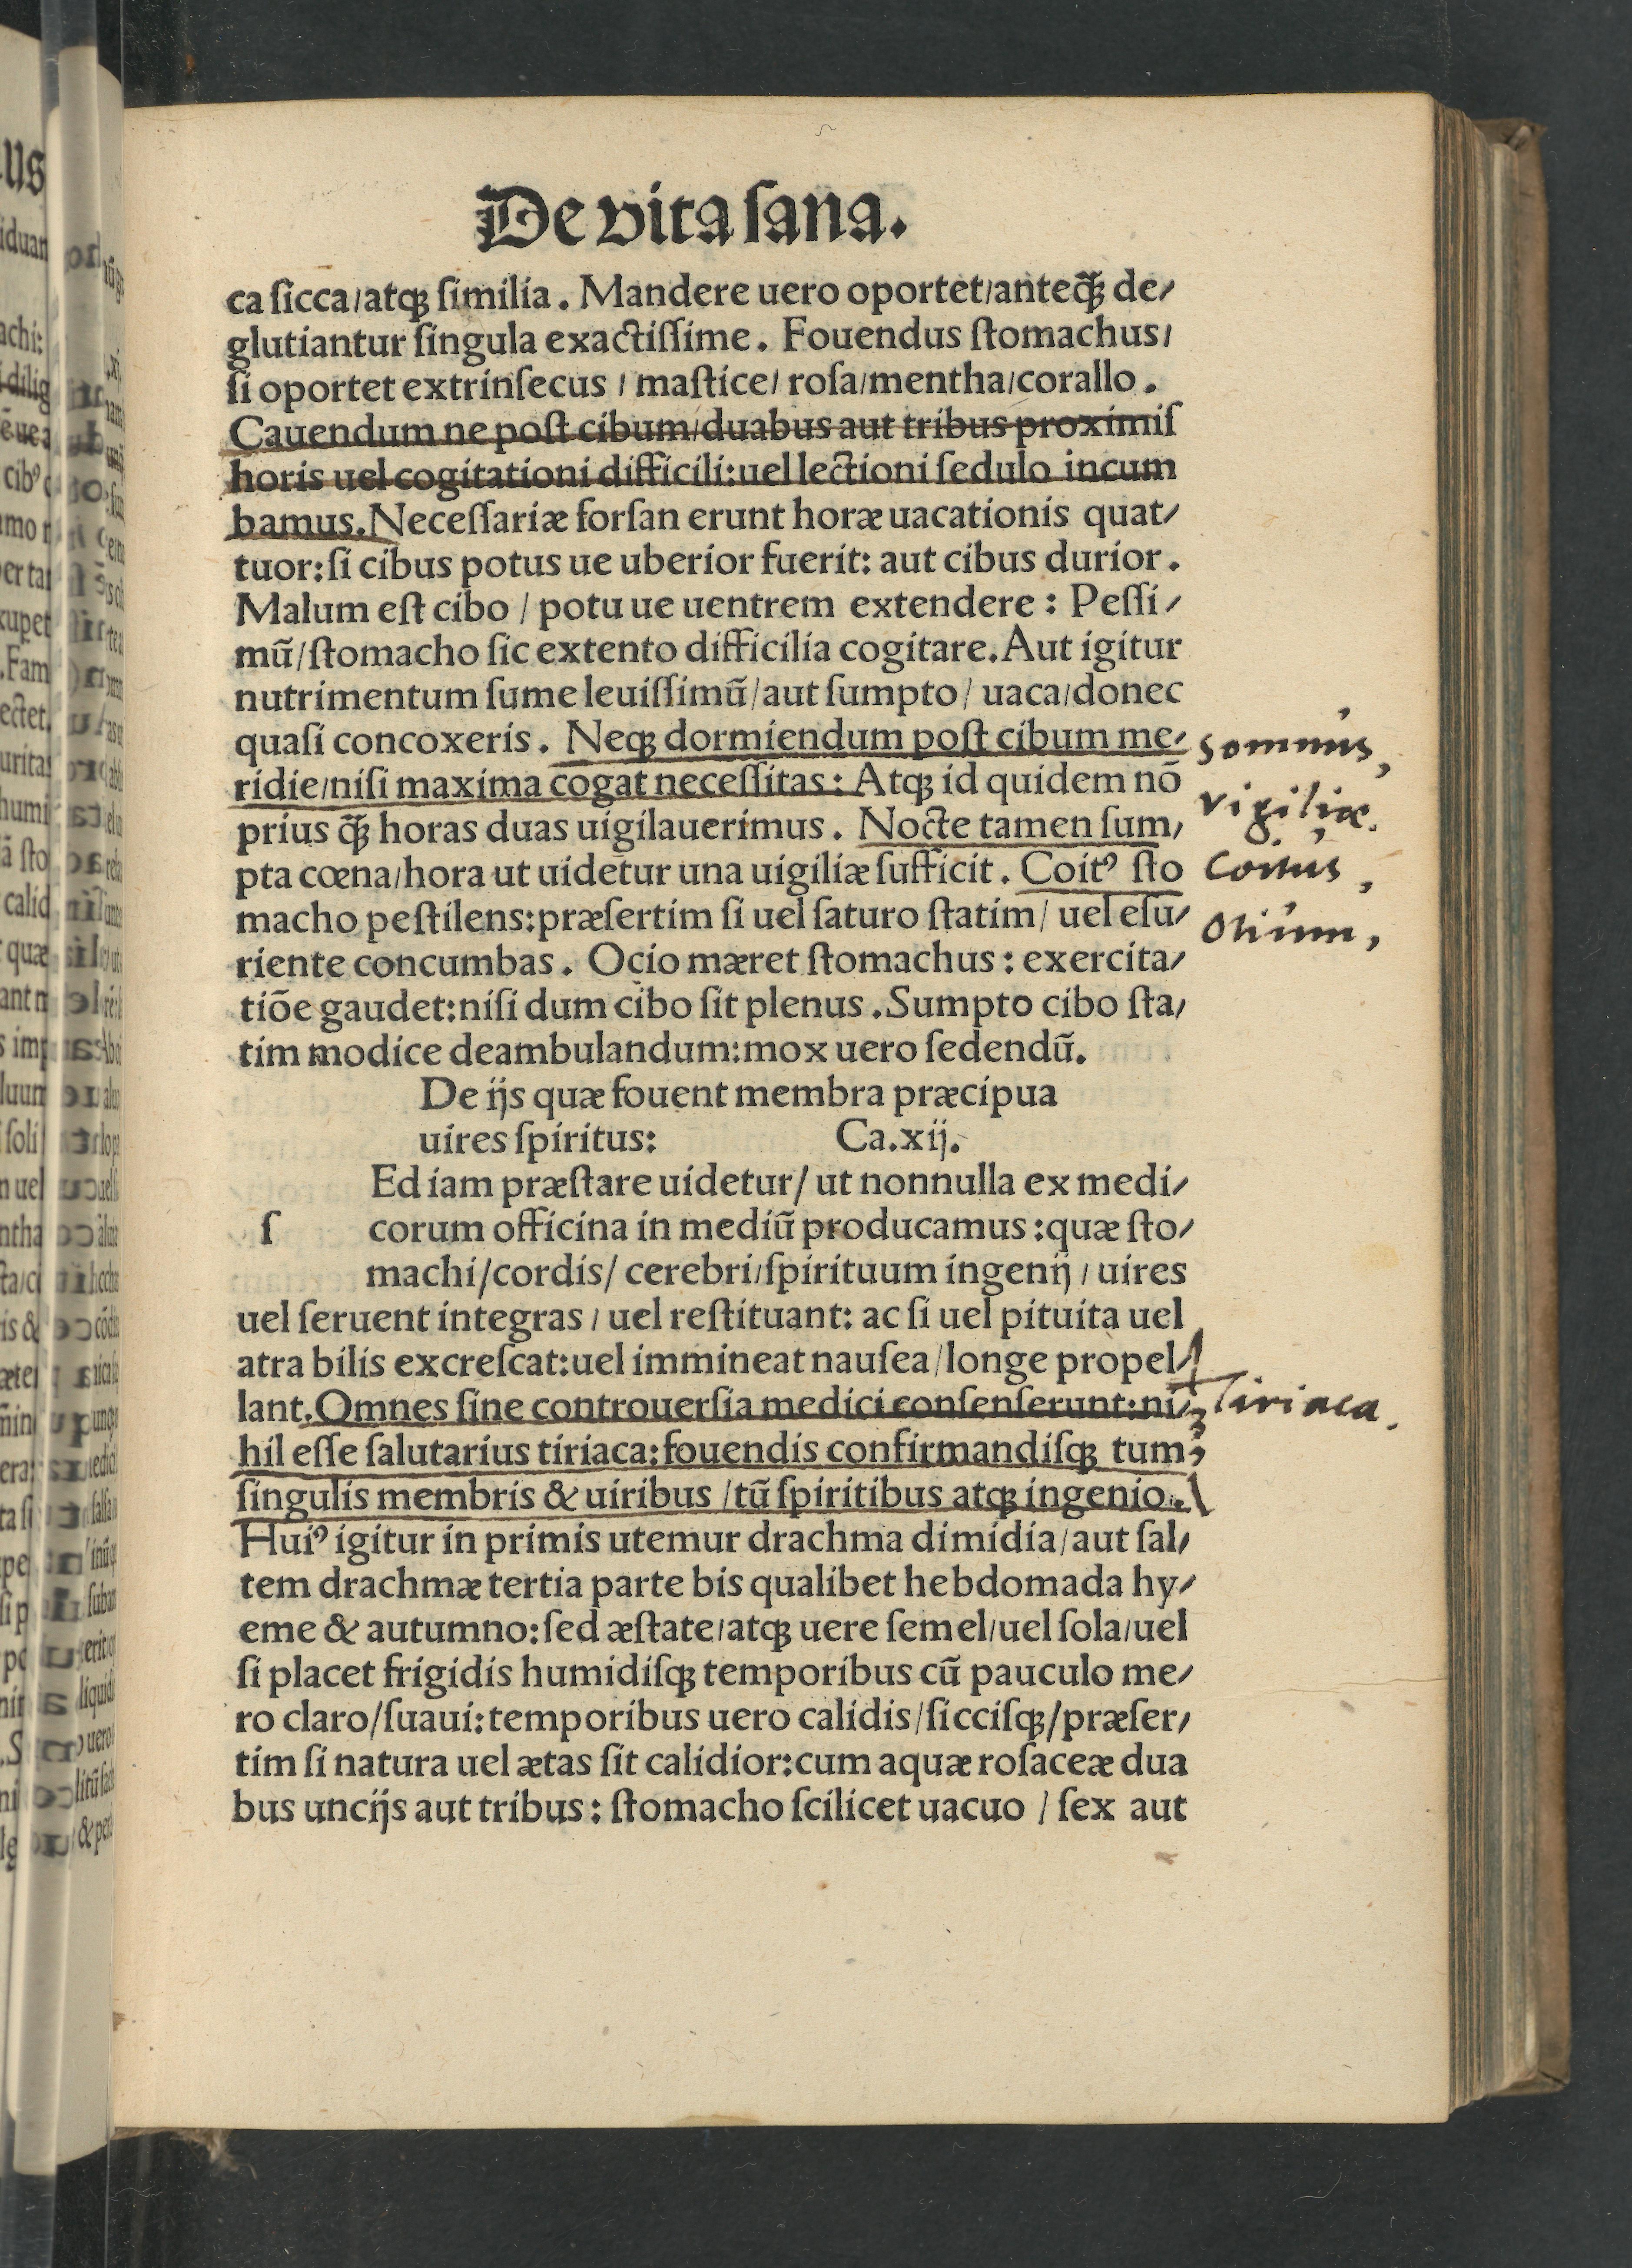 De vita ſana.
ca ſicca/atqꝫ ſimilia. Mandere uero oportet/anteq̃ꝫ de/
glutiantur ſingula exactiſſime. Fouendus ſtomachus/
ſi oportet extrinſecus / maſtice/ roſa/mentha/corallo.
Cauendum ne poſt cibum/duabus aut tribus proximiſ
horis uel cogitationi difficili:uel lectioni ſedulo incum
bamus. Neceſſariæ forſan erunt horæ uacationis quat/
tuor: ſi cibus potus ue uberior fuerit: aut cibus durior.
Malum eſt cibo / potu ue uentrem extendere: Peſſi/
mũ/ſtomacho ſic extento difficilia cogitare. Aut igitur
nutrimentum ſume leuiſſimũ/aut ſumpto/ uaca/donec
quaſi concoxeris. Neqꝫ dormiendum poſt cibum me/
ridie/niſi maxima cogat neceſſitas: Atqꝫ id quidem nõ
prius q̃ꝫ horas duas uigilauerimus. Nocte tamen ſum/
pta cœna/hora ut uidetur una uigiliæ ſufficit. Coitꝰ ſto
macho peſtilens:præſertim ſi uel ſaturo ſtatim/ uel eſu/
riente concumbas. Ocio mæret ſtomachus: exercita/
tiõe gaudet:niſi dum cibo ſit plenus. Sumpto cibo ſta/
tim modice deambulandum:mox uero ſedendũ.
somnus,
vigiliæ.
Coitus,
Otium,
De ijs quæ fouent membra præcipua
uires ſpiritus: Ca.xij.
ſ Ed iam præſtare uidetur/ ut nonnulla ex medi/
corum officina in mediũ producamus:quæ ſto/
machi/cordis/ cerebri/ſpirituum ingenij / uires
uel ſeruent integras / uel reſtituant: ac ſi uel pituita uel
atra bilis excreſcat:uel immineat nauſea/longe propel/
lant. Omnes ſine controuerſia medici conſenſerunt:ni/
hil eſſe ſalutarius tiriaca:fouendis confirmandiſqꝫ tum
ſingulis membris & uiribus /tũ ſpiritibus atqꝫ ingenio.
Tiriaca.
Huiꝰ igitur in primis utemur drachma dimidia/aut ſal/
tem drachmæ tertia parte bis qualibet hebdomada hy/
eme & autumno:ſed æſtate/atqꝫ uere ſemel/uel ſola/uel
ſi placet frigidis humidiſqꝫ temporibus cũ pauculo me/
ro claro/ſuaui:temporibus uero calidis/ſicciſqꝫ/præſer/
tim ſi natura uel ætas ſit calidior:cum aquæ roſaceæ dua
bus uncijs aut tribus: ſtomacho ſcilicet uacuo / ſex aut